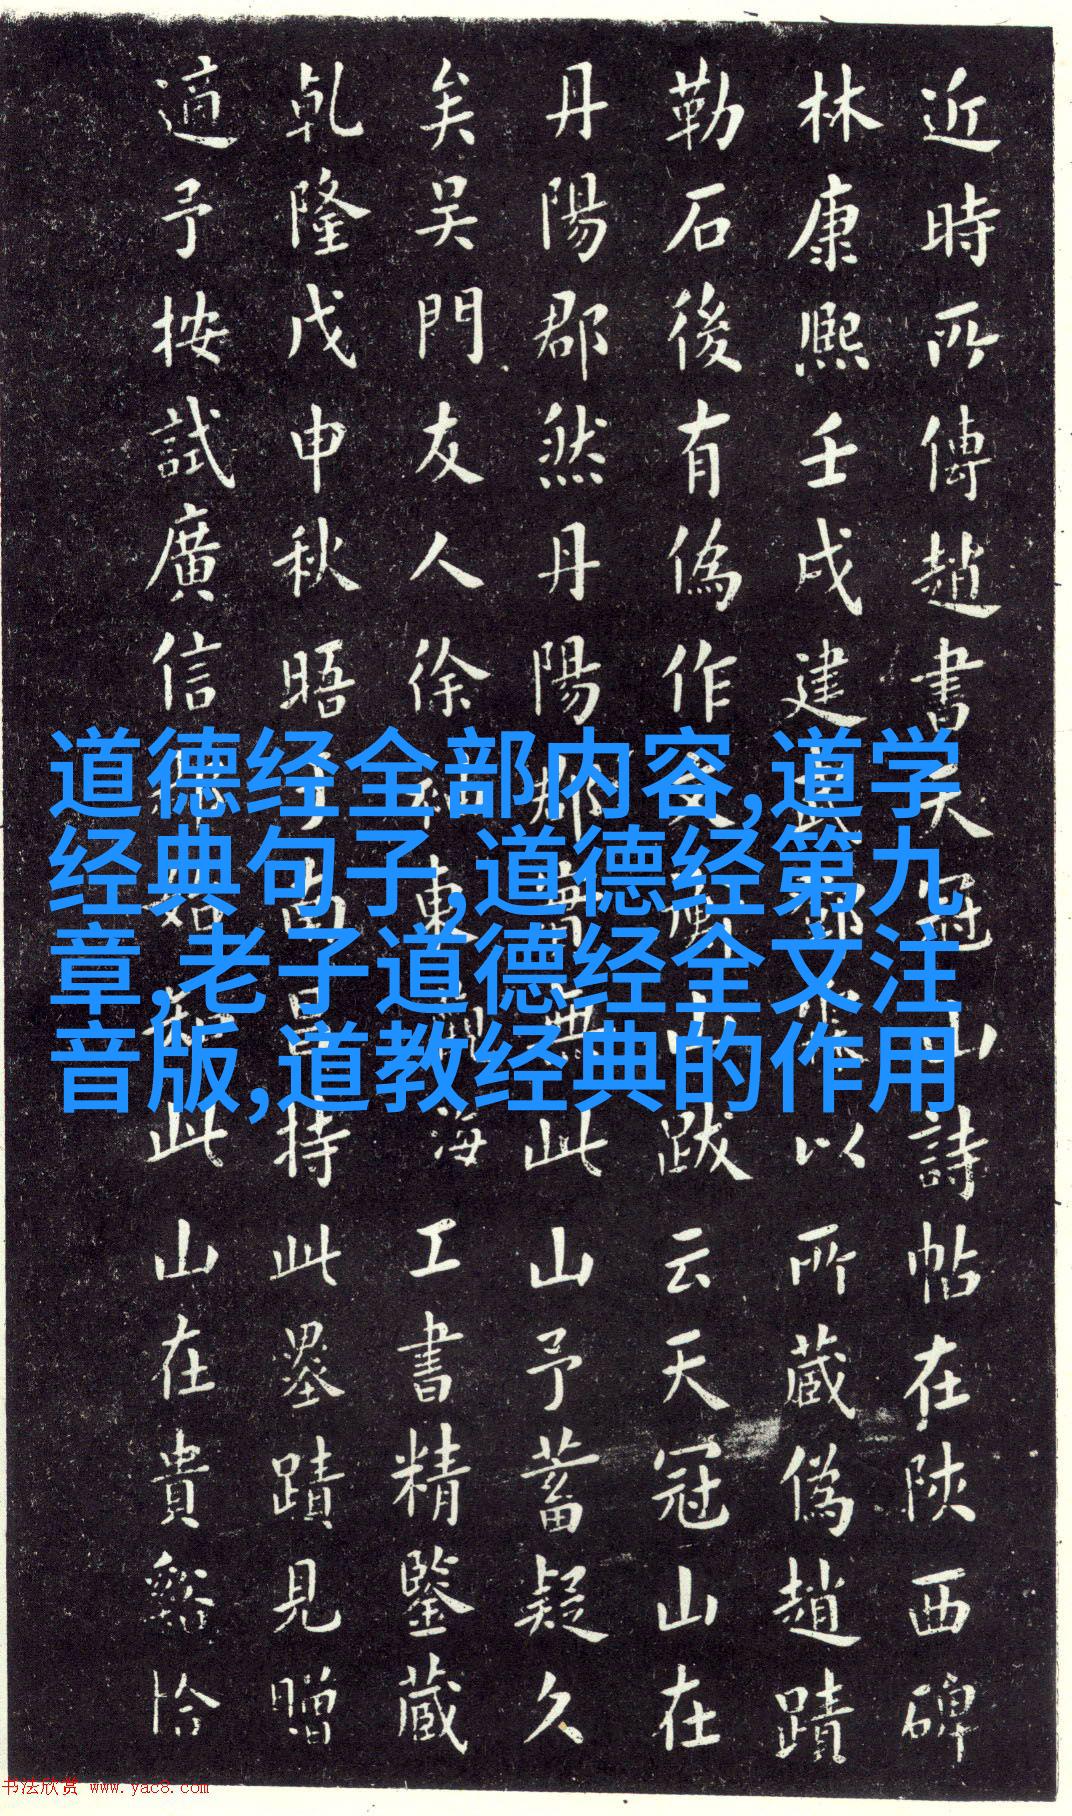 近時所傳趙書天冠山詩帖在陝西碑
林康熙壬戌建武郡以所藏偽趙蹟
勒石後有偽作文山跋云天冠山在
丹陽郡然丹陽郡實無此山予蓄疑久
矣吳門友人徐東海工書精鑒藏
乹隆戊申秋晤于南昌持此墨蹟見贈
適予按試廣信郡始知此山在貴谿恰
道德经全部内容,道学
经典句子,道德经第九
章,老子道德经全文注
音版,道教经典的作用
书法欣赏 www.yac8.com